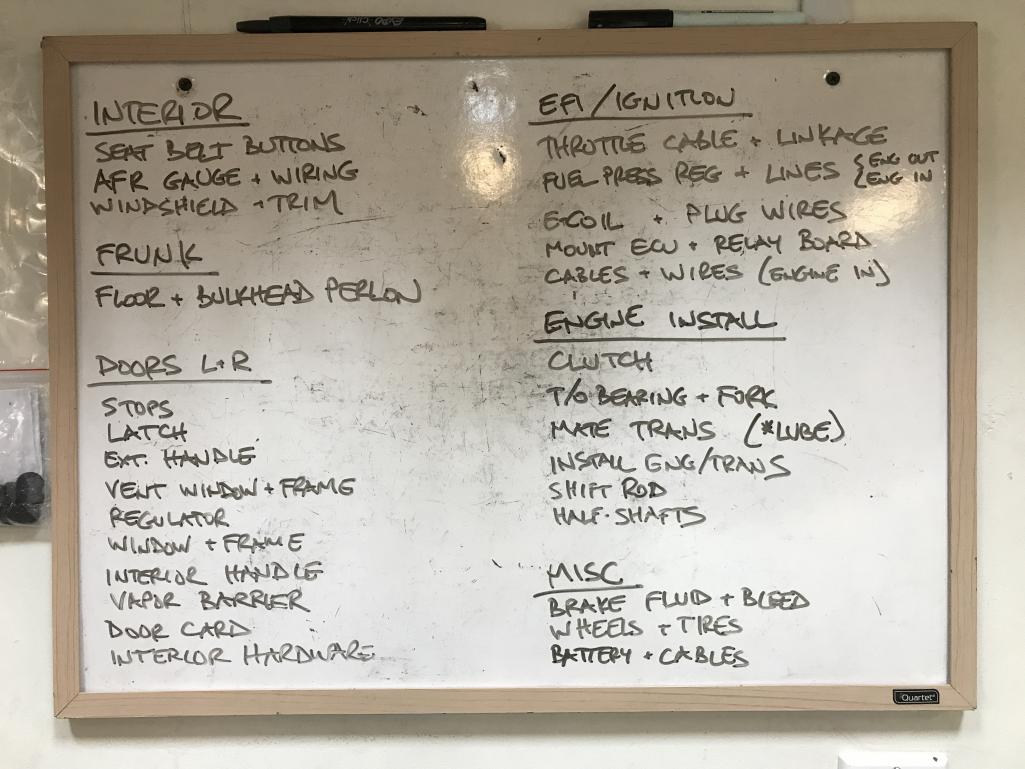 EXPO CLICK
INTERIOR
SEAT BELT BUTTONS
AFR GAUGE + WIRING
WINDSHIELD + TRIM
FRUNK
FLOOR + BULKHEAD PERLON
DOORS L+R
STOPS
LATCH
EXT. HANDLE
VENT WINDOW + FRAME
REGULATOR
WINDOW + FRAME
INTERIOR HANDLE
VAPOR BARRIER
DOOR CARD
INTERIOR HARDWARE
EFI/IGNITION
THROTTLE CABLE + LINKAGE
FUEL PRESS REG + LINES { ENG OUT
ENG IN
E-COIL + PLUG WIRES
MOUNT ECU + RELAY BOARD
CABLES + WIRES (ENGINE IN)
ENGINE INSTALL
CLUTCH
T/O BEARING + FORK
MATE TRANS (*LUBE)
INSTALL ENG/TRANS
SHIFT ROD
HALF-SHAFTS
MISC
BRAKE FLUID + BLEED
WHEELS + TIRES
BATTERY + CABLES
Quartet